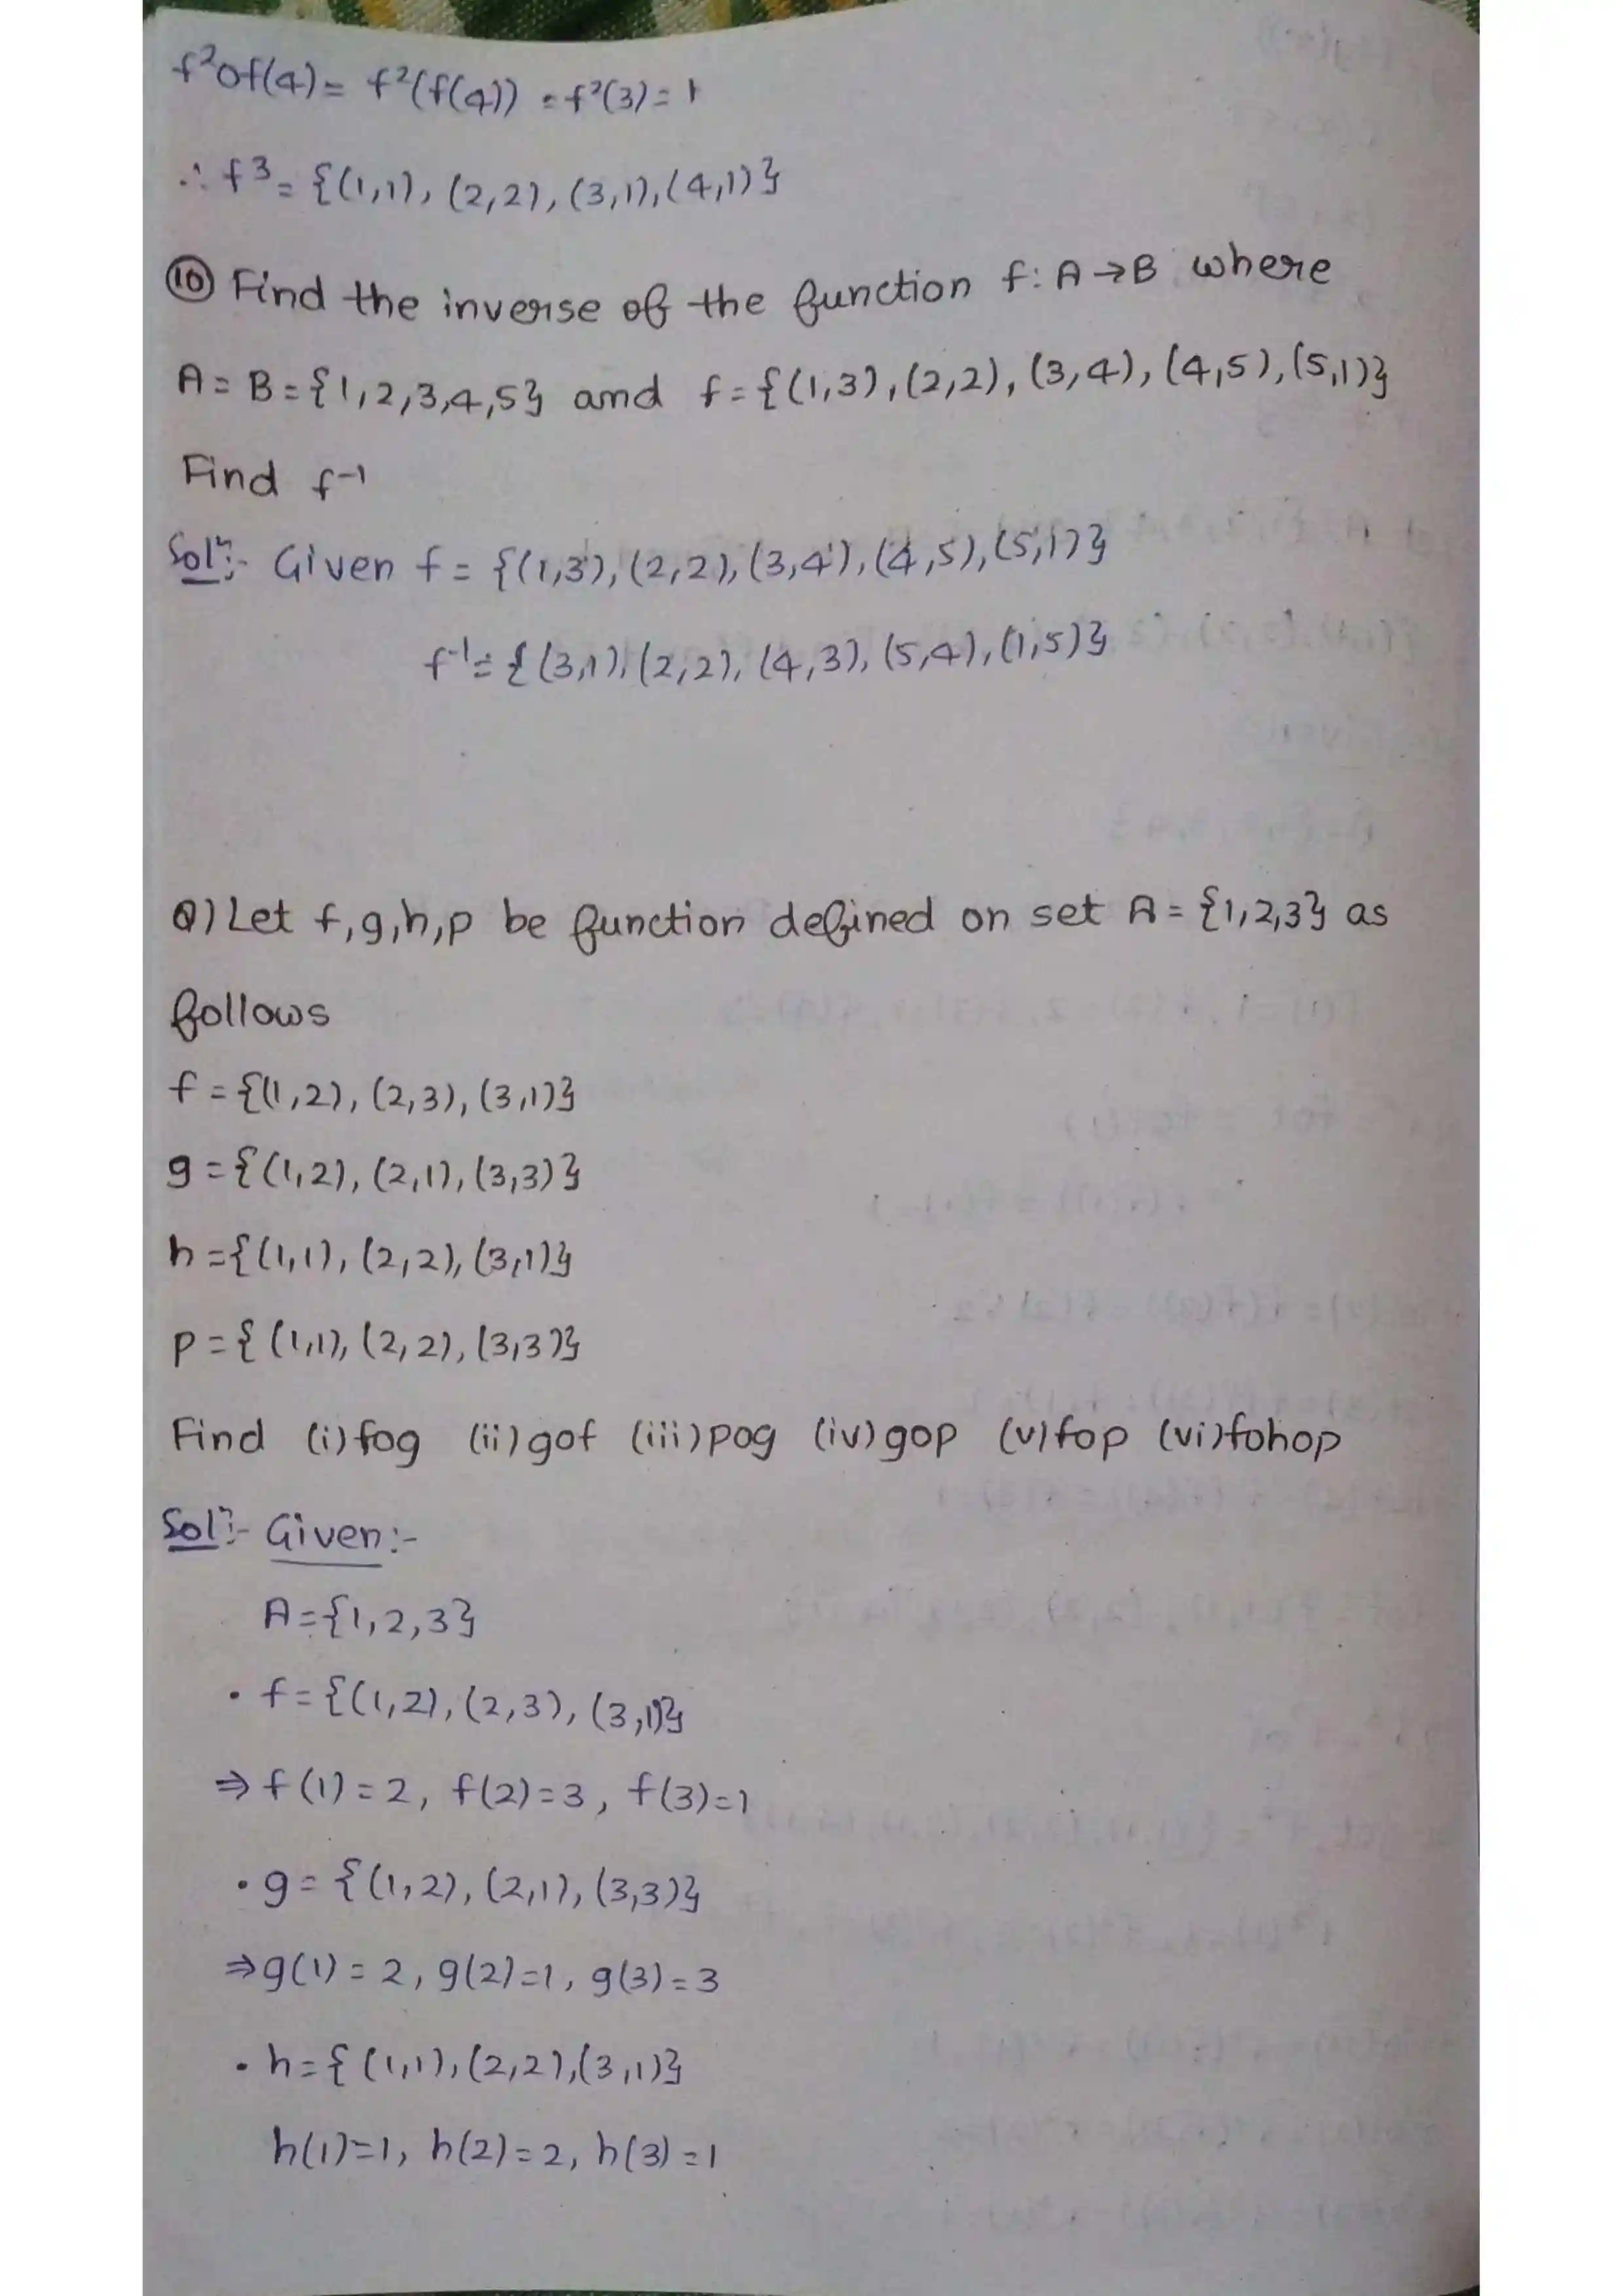 f²of(4) = f²(f(4)) = f²(3) = 1
∴ f³ = {(1,1), (2,2), (3,1), (4,1)}
⑩ Find the inverse of the function f: A→B where
A = B = {1,2,3,4,5} and f = {(1,3), (2,2), (3,4), (4,5), (5,1)}
Find f⁻¹
Solⁿ:- Given f = {(1,3), (2,2), (3,4), (4,5), (5,1)}
f⁻¹ = {(3,1), (2,2), (4,3), (5,4), (1,5)}
Q) Let f,g,h,p be function defined on set A = {1,2,3} as
follows
f = {(1,2), (2,3), (3,1)}
g = {(1,2), (2,1), (3,3)}
h = {(1,1), (2,2), (3,1)}
p = {(1,1), (2,2), (3,3)}
Find (i) fog (ii) gof (iii) pog (iv) gop (v) fop (vi) fohop
Solⁿ:- Given:-
A = {1,2,3}
• f = {(1,2), (2,3), (3,1)}
⇒ f(1) = 2, f(2) = 3, f(3) = 1
• g = {(1,2), (2,1), (3,3)}
⇒ g(1) = 2, g(2) = 1, g(3) = 3
• h = {(1,1), (2,2), (3,1)}
h(1) = 1, h(2) = 2, h(3) = 1